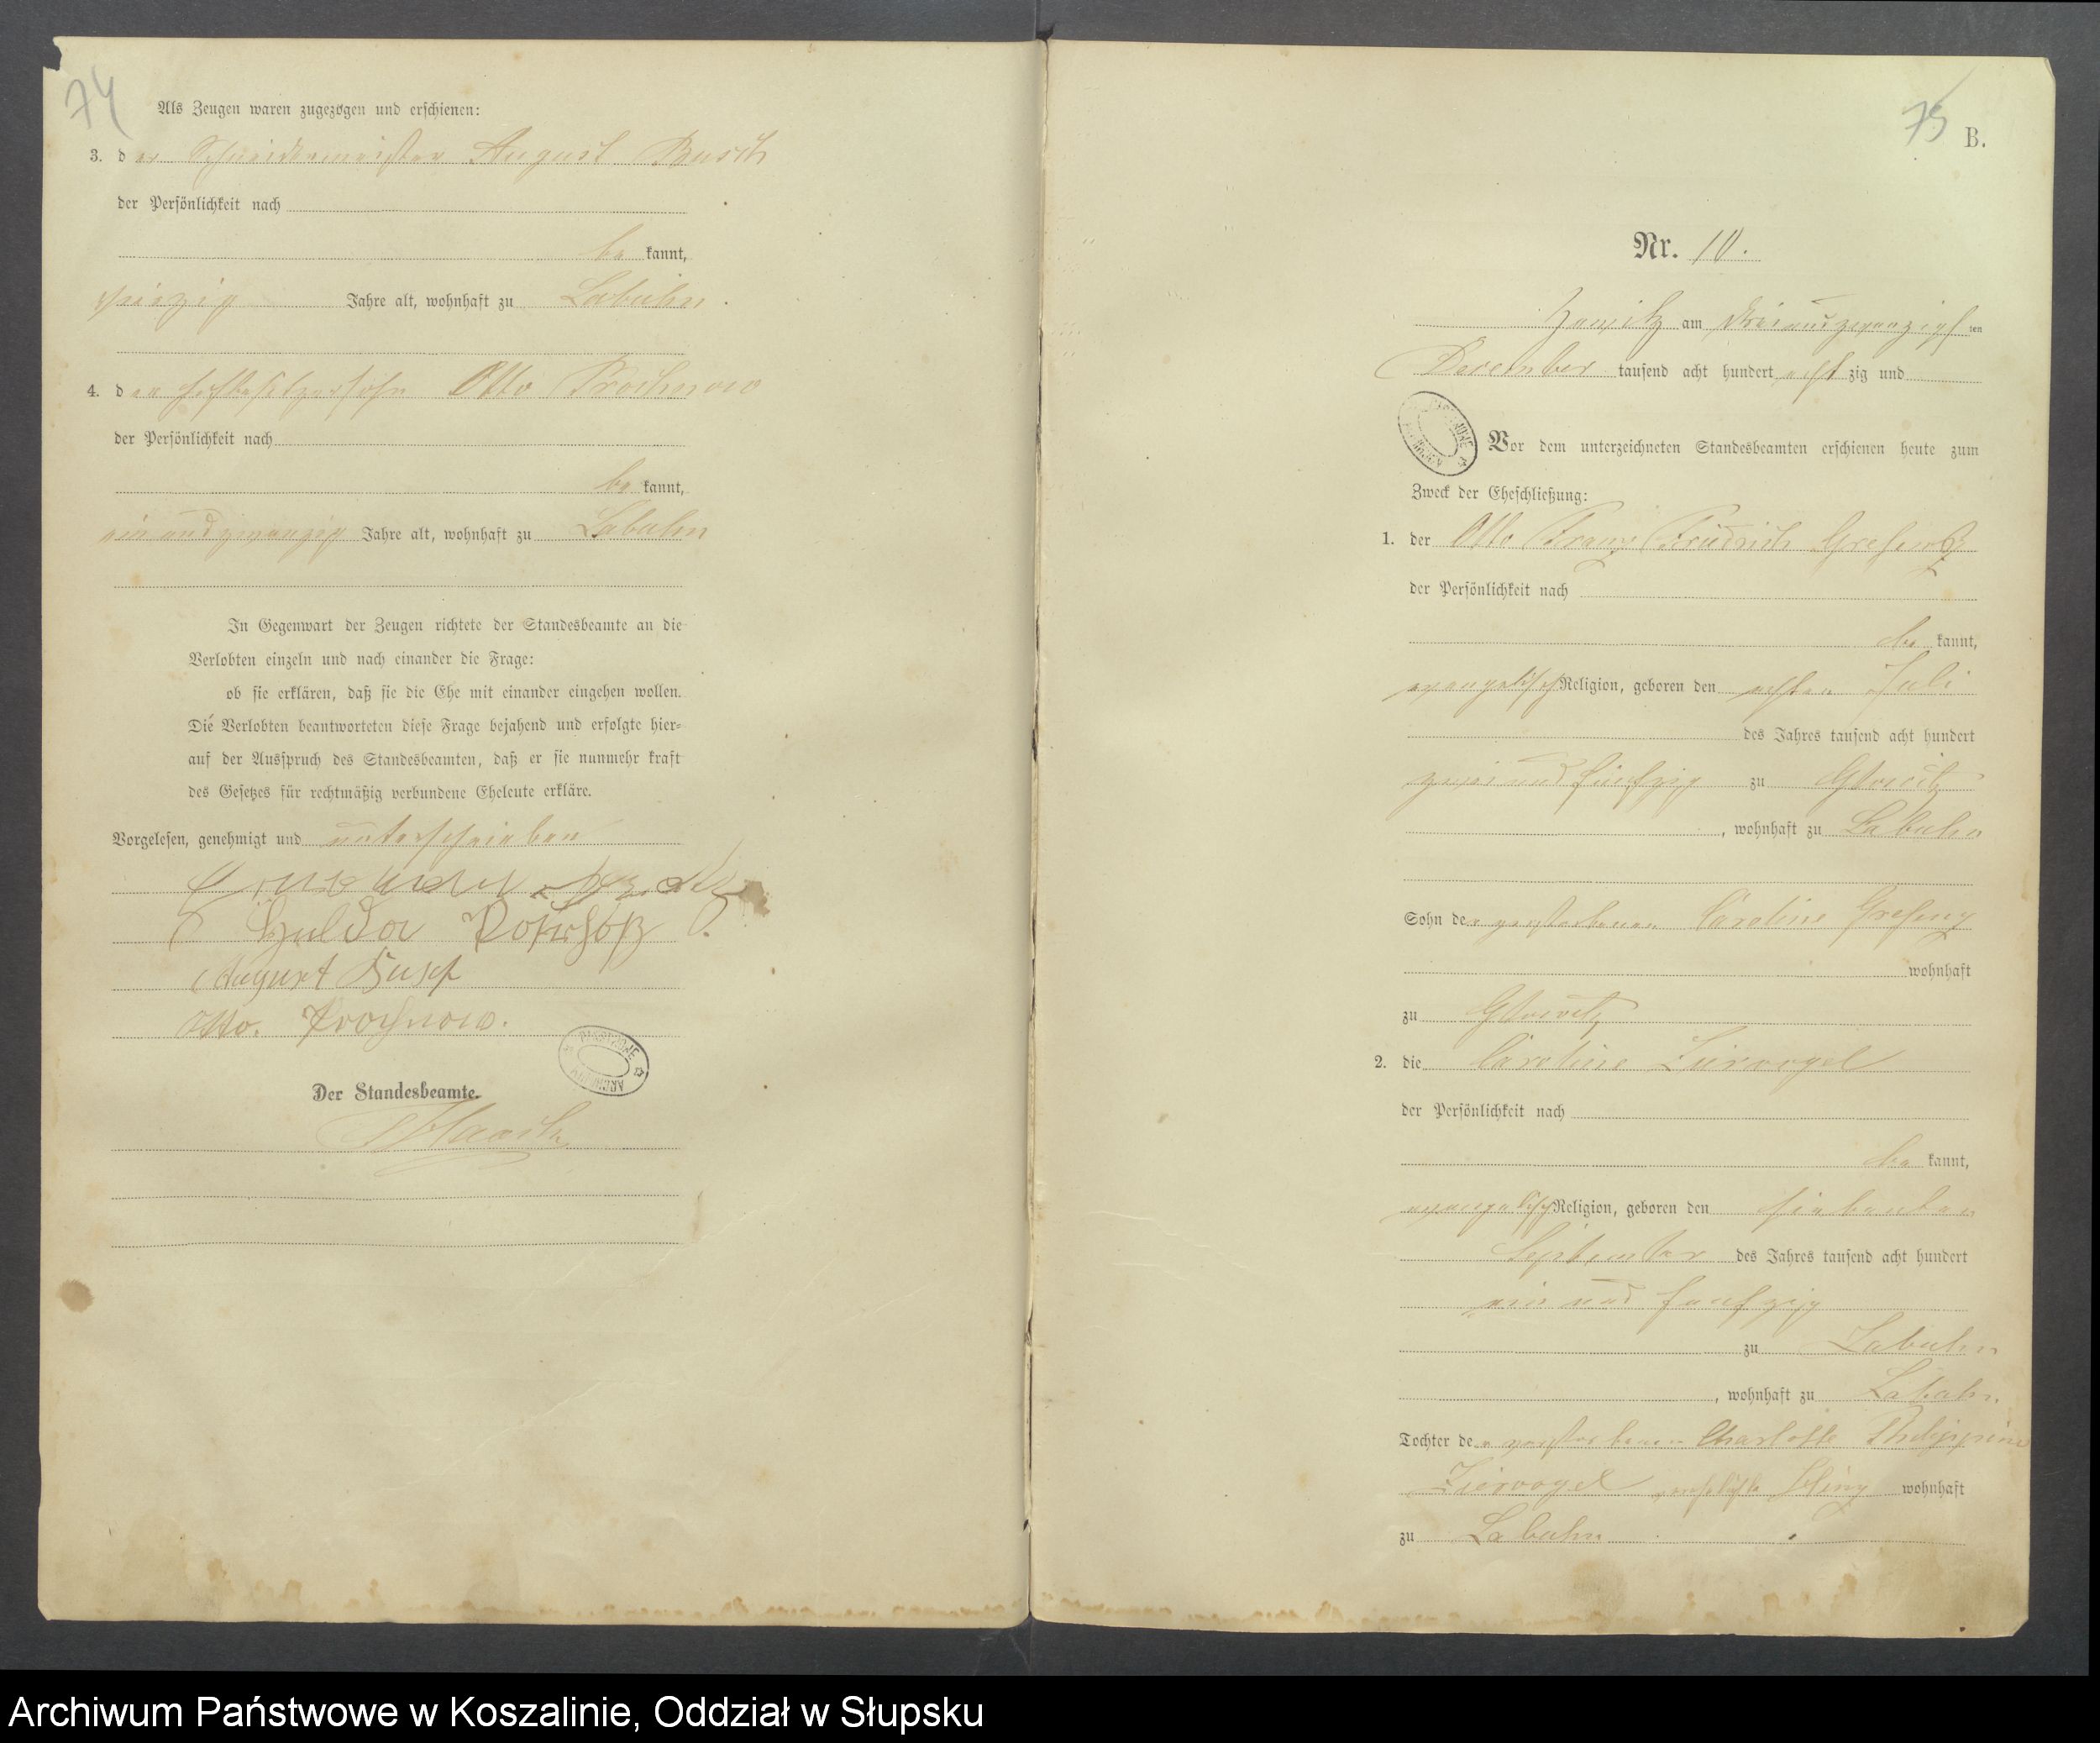 74
Als Zeugen waren zugezogen und erschienen:
3. der Schneidermeister August Busch
der Persönlichkeit nach
bekannt,
Jahre alt, wohnhaft zu Labuhn
4. der Hofbesitzersohn Otto Prochnow
der Persönlichkeit nach
bekannt,
einundzwanzig Jahre alt, wohnhaft zu Labuhn
In Gegenwart der Zeugen richtete der Standesbeamte an die
Verlobten einzeln und nach einander die Frage:
ob sie erklären, daß sie die Ehe mit einander eingehen wollen.
Die Verlobten beantworteten diese Frage bejahend und erfolgte hier-
auf der Ausspruch des Standesbeamten, daß er sie nunmehr kraft
des Gesetzes für rechtmäßig verbundene Eheleute erkläre.
Vorgelesen, genehmigt und unterschrieben
Hulda
August Busch
Otto. Prochnow.
Der Standesbeamte.
75 B.
Nr. 10.
am dreiundzwanzigsten
December tausend acht hundert achtzig und
Vor dem unterzeichneten Standesbeamten erschienen heute zum
Zweck der Eheschließung:
1. der Otto Franz Friedrich
der Persönlichkeit nach
bekannt,
evangelisch Religion, geboren den achten Juli
des Jahres tausend acht hundert
zwei und fünfzig zu Glowitz
, wohnhaft zu Labuhn
Sohn der verstorbenen Caroline
wohnhaft
zu Glowitz
2. die Caroline Ziervogel
der Persönlichkeit nach
bekannt,
evangelisch Religion, geboren den siebenten
September des Jahres tausend acht hundert
ein und funfzig
zu Labuhn
, wohnhaft zu Labuhn
Tochter der verstorbenen Charlotte Philippine
Ziervogel verehelichte wohnhaft
zu Labuhn
Archiwum Państwowe w Koszalinie, Oddział w Słupsku